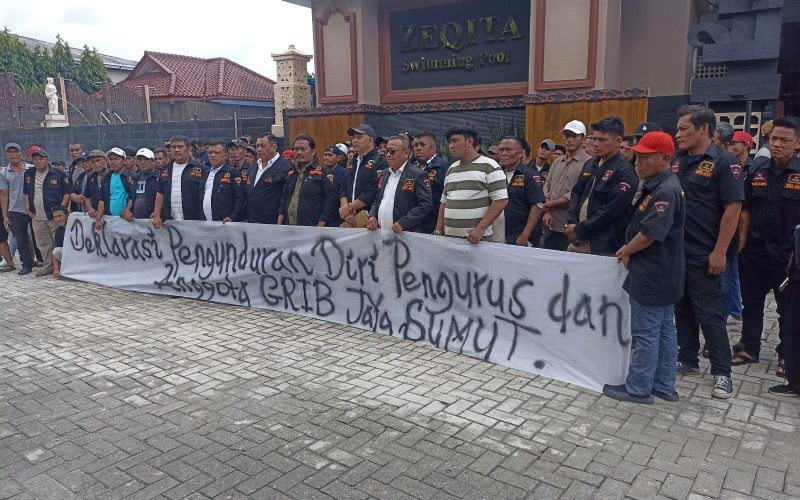 ZEQITA
Swimming Pool
Deklarasi Pengunduran Diri Pengurus dan
Anggota GRIB JAYA SUMUT.